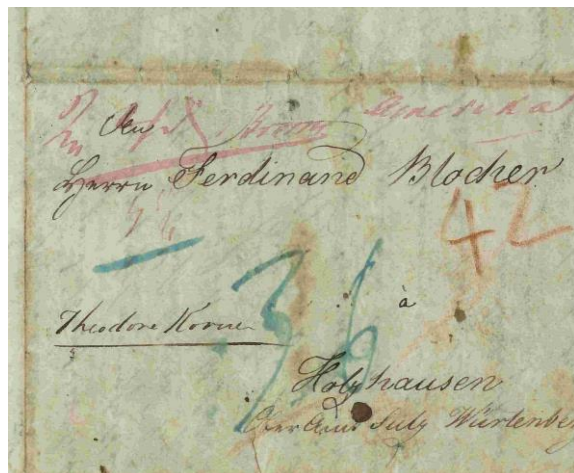 Amerika
Den
Herrn Ferdinand Blocher
42
36
Theodore Korner
à
Holzhausen
OberAmt Sulz Würtenberg